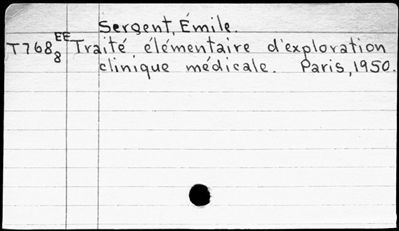 Sergent, Émile.
T768 EE 8 Traité élémentaire d'exploration
clinique médicale. Paris, 1950.